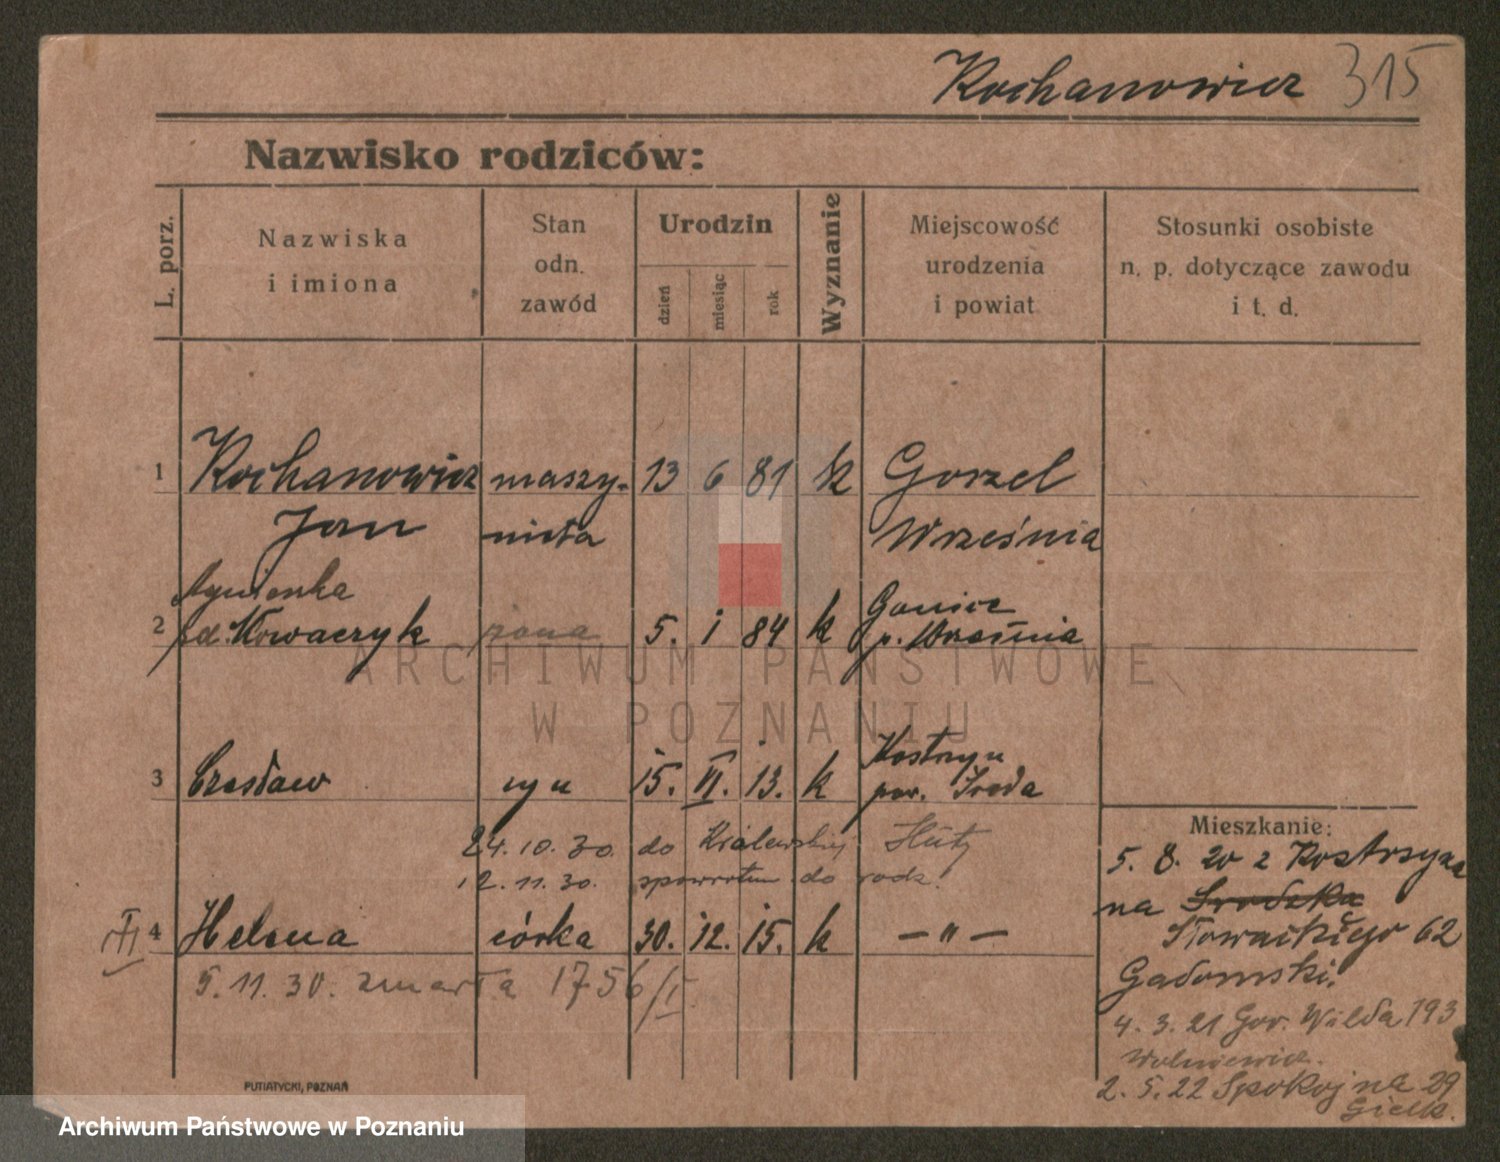 Kochanowicz 315
Nazwisko rodziców:
L. porz.
Nazwiska
i imiona
Stan
odn.
zawód
Urodzin
dzień
miesiąc
rok
Wyznanie
Miejscowość
urodzenia
i powiat
Stosunki osobiste
n. p. dotyczące zawodu
i t. d.
1 Kochanowicz maszy- 13 6 81 k Gorzel
Jan nista Września
Agnieszka
2 Nowaczyk żona 5. i 84 k
p. Września
3 Czesław syn 15. VI. 13. k Kostrzyn
pow. Środa
24.10.30. do Królewskiej Huty
12.11.30. spowrotem do rodz.
III 4 Helena córka 30. 12. 15. k — " —
5.11.30. zmarła 1756/I.
Mieszkanie:
5. 8. 20 z Kostrzyna
na Srodzka
Słowackiego 62
Gadomski.
4. 3. 21 Gor. Wilda 193
2. 5. 22 Spokojna 29
PUTIATYCKI, POZNAŃ
ARCHIWUM PAŃSTWOWE
W POZNANIU
Archiwum Państwowe w Poznaniu